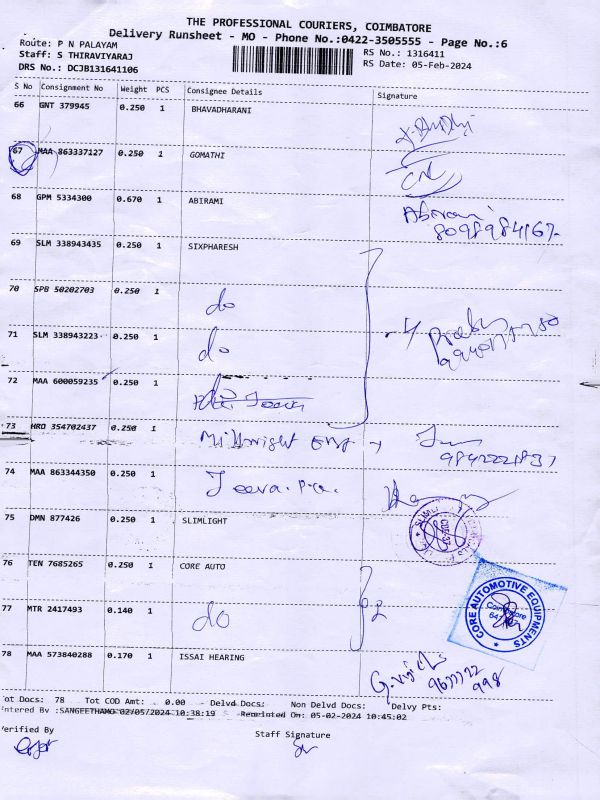 THE PROFESSIONAL COURIERS, COIMBATORE
Delivery Runsheet - MO - Phone No.:0422-3505555 - Page No.:6
Route: P N PALAYAM
Staff: S THIRAVIYARAJ
DRS No.: DCJB131641106
RS No.: 1316411
RS Date: 05-Feb-2024
S No Consignment No Weight PCS Consignee Details Signature
66 GNT 379945 0.250 1 BHAVADHARANI
67 MAA 863337127 0.250 1 GOMATHI
68 GPM 5334300 0.670 1 ABIRAMI Abirami
8098984167
69 SLM 338943435 0.250 1 SIXPHARESH
70 SPB 50202703 0.250 1 do
71 SLM 338943223 0.250 1 do
72 MAA 600059235 0.250 1 do
73 HRO 354702437 0.250 1 Millwright Eng
74 MAA 863344350 0.250 1 Jeeva. p.a.
75 DMN 877426 0.250 1 SLIMLIGHT
76 TEN 7685265 0.250 1 CORE AUTO
CORE AUTOMOTIVE EQUIPMENTS
Coimbatore
77 MTR 2417493 0.140 1 do 2
78 MAA 573840288 0.170 1 ISSAI HEARING
ot Docs: 78 Tot COD Amt: 0.00 Delvd Docs: Non Delvd Docs: Delvy Pts:
ntered By :SANGEETHAMO 02/05/2024 10:38:19 Reprinted On: 05-02-2024 10:45:02
erified By
Staff Signature